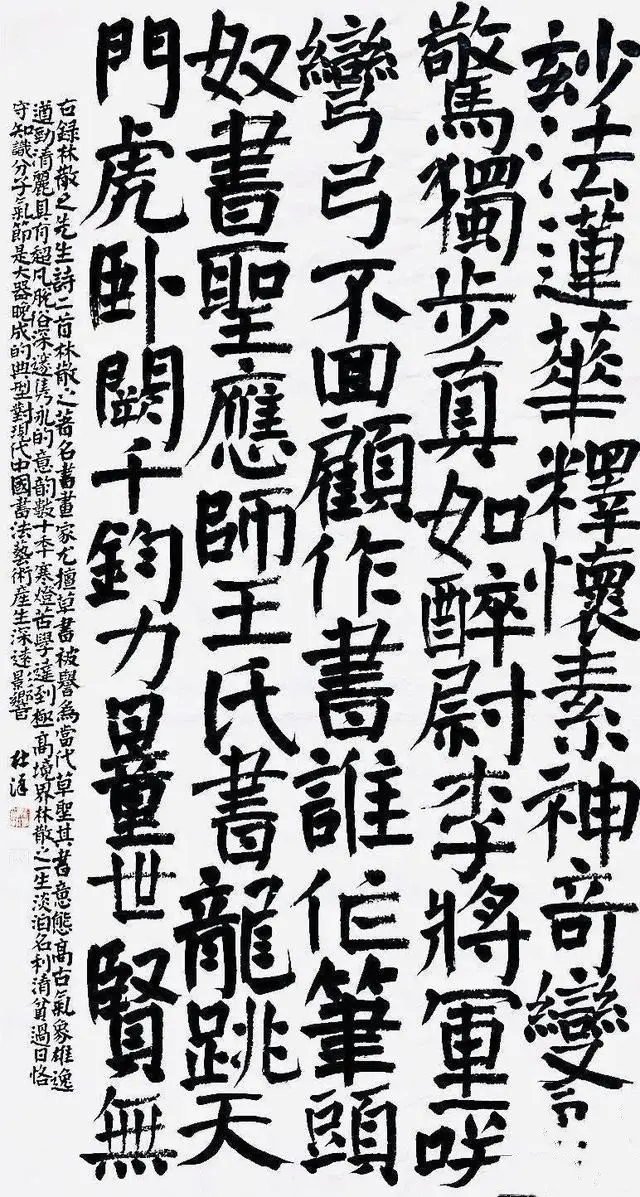 玅法蓮華釋懷素神奇變
驚獨步真如醉尉李將軍呼
彎弓不回顧作書誰作筆頭
奴書聖應師王氏書龍跳天
門虎卧闕千鈞力量世賢無
右錄林散之先生詩二首林散之著名書畫家尤擅草書被譽為當代草聖其書意態高古氣象雄逸
遒勁清麗具有超凡脫俗深邃雋永的意韵數十年寒燈苦學達到極高境界林散之一生淡泊名利清貧過日恪
守知識分子氣節是大器晚成的典型對現代中國書法藝術産生深遠影響